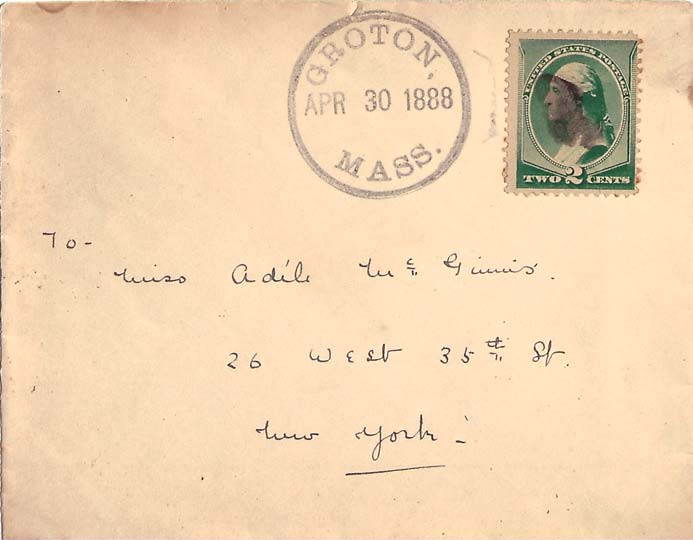 GROTON,
APR 30 1888
MASS.
UNITED STATES POSTAGE
TWO 2 CENTS
To-
Miss Adéle Mc Ginnis.
26 West 35th St.
New York-